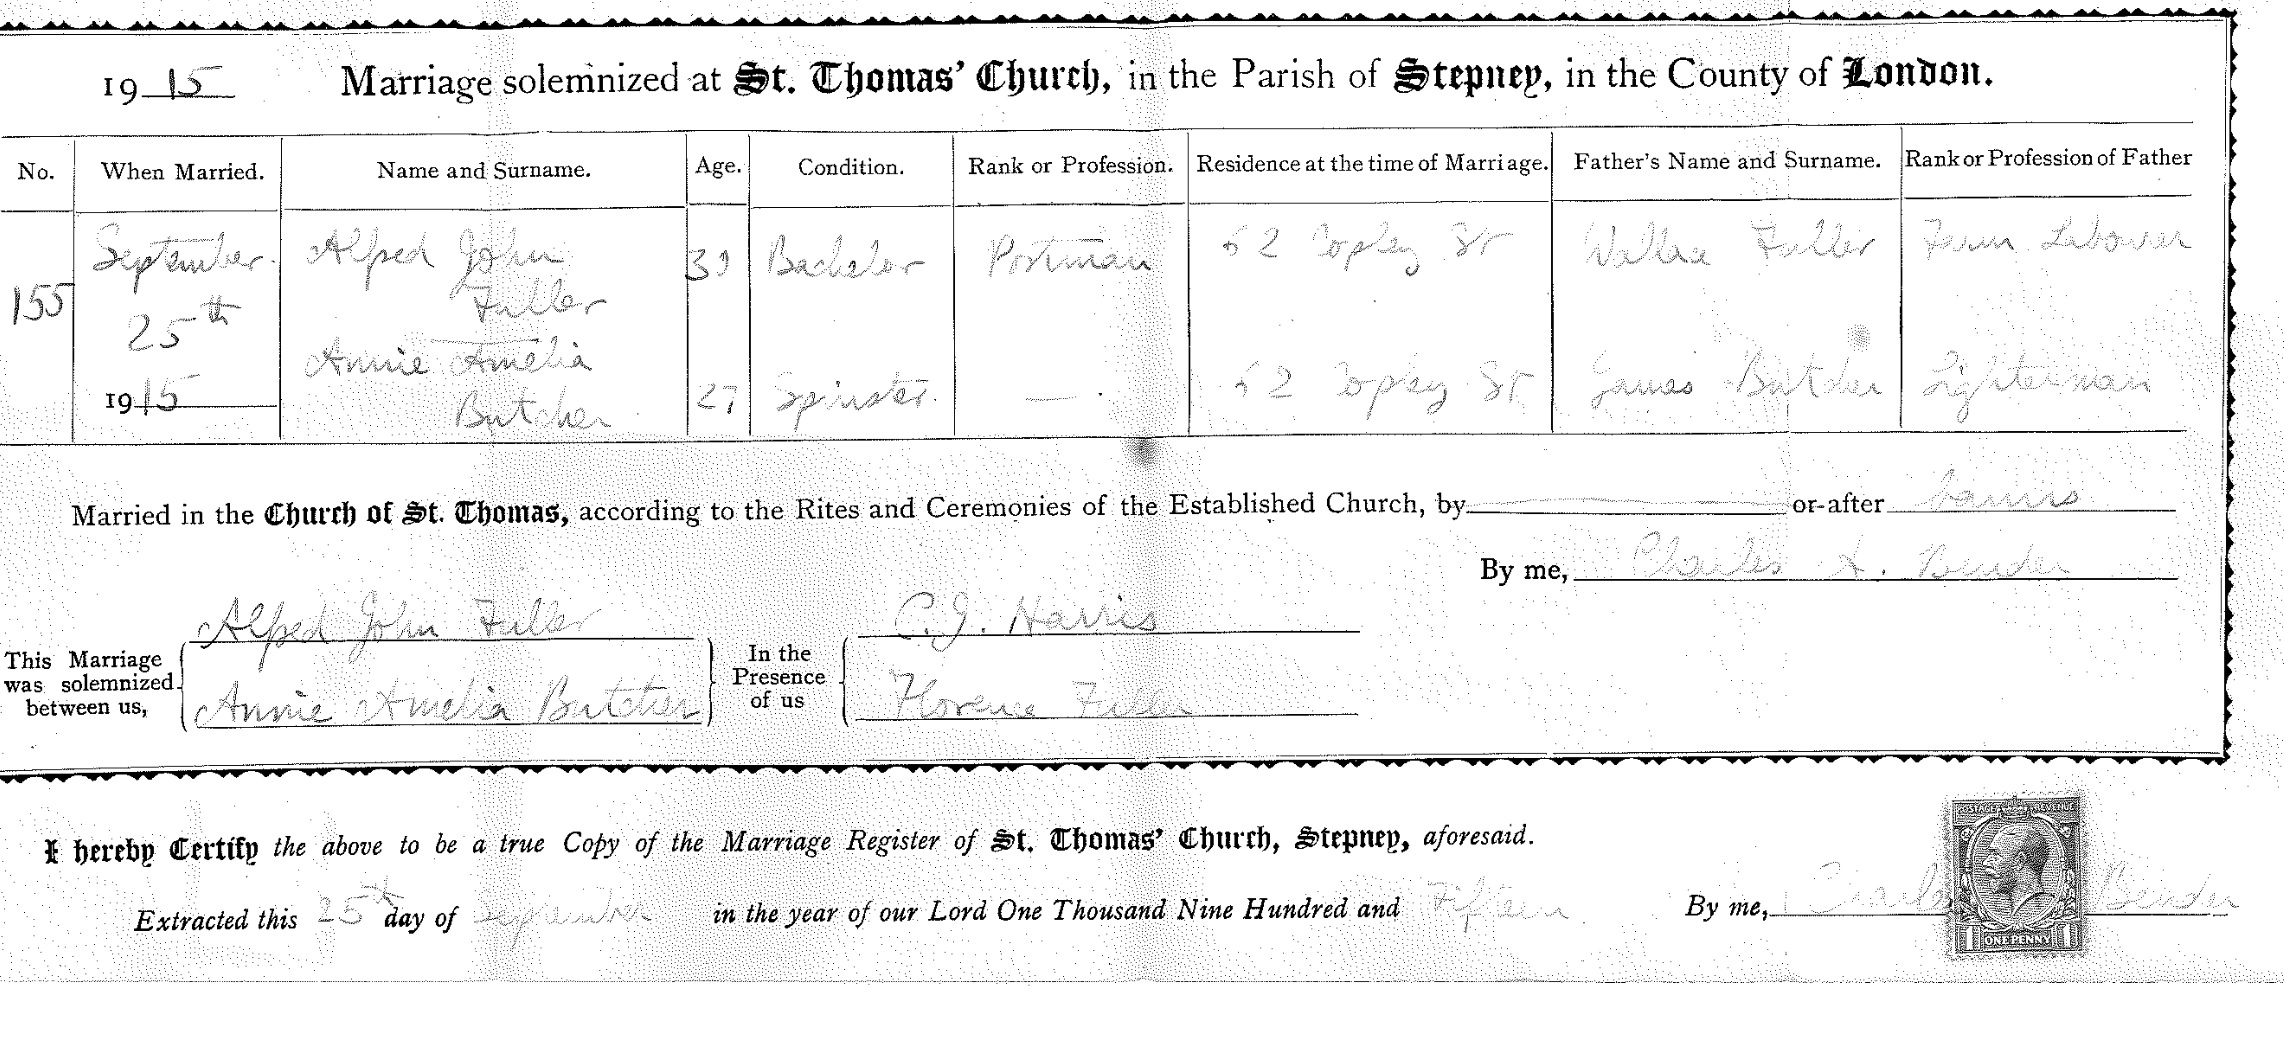 1915 Marriage solemnized at St. Thomas' Church, in the Parish of Stepney, in the County of London.
No. When Married. Name and Surname. Age. Condition. Rank or Profession. Residence at the time of Marriage. Father's Name and Surname. Rank or Profession of Father
155 September 25th 1915 Alfred John Fuller Bachelor Postman 2 Copley St Fuller Farm Labourer
Annie Amelia Butcher 27 Spinster. — 2 Copley St James Butcher Lighterman
Married in the Church of St. Thomas, according to the Rites and Ceremonies of the Established Church, by or after banns
By me, Charles Bender
This Marriage was solemnized between us,
Alfred John Fuller
Annie Amelia Butcher
In the Presence of us
C.J. Harris
Florence Fuller
I hereby Certify the above to be a true Copy of the Marriage Register of St. Thomas' Church, Stepney, aforesaid.
Extracted this 25th day of September in the year of our Lord One Thousand Nine Hundred and Fifteen By me, Charles Bender
POSTAGE REVENUE
1 ONE PENNY 1